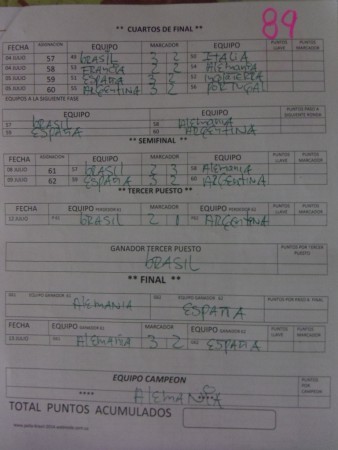 ** CUARTOS DE FINAL ** 89
FECHA ASIGNACION EQUIPO MARCADOR EQUIPO PUNTOS LLAVE PUNTOS MARCADOR
04 JULIO 57 49 BRASIL 3 2 50 ITALIA
04 JULIO 58 53 FRANCIA 2 2 54 ALEMANIA
05 JULIO 59 51 ESPAÑA 3 2 52 INGLATERRA
05 JULIO 60 55 ARGENTINA 3 2 56 PORTUGAL
EQUIPOS A LA SIGUIENTE FASE
EQUIPO EQUIPO PUNTOS PASO A SIGUIENTE RONDA
57 BRASIL 58 ALEMANIA
59 ESPAÑA 60 ARGENTINA
** SEMIFINAL **
FECHA ASIGNACION EQUIPO MARCADOR EQUIPO PUNTOS LLAVE PUNTOS MARCADOR
08 JULIO 61 57 BRASIL 2 3 58 ALEMANIA
09 JULIO 62 59 ESPAÑA 3 2 60 ARGENTINA
** TERCER PUESTO **
FECHA EQUIPO MARCADOR EQUIPO PUNTOS LLAVE PUNTOS MARCADOR
12 JULIO BRASIL 2 1 ARGENTINA
GANADOR TERCER PUESTO PUNTOS POR TERCER PUESTO
BRASIL
** FINAL **
G61 EQUIPO GANADOR 61 G62 EQUIPO GANADOR 62 PUNTOS POR PASO A FINAL
ALEMANIA ESPAÑA
FECHA EQUIPO GANADOR 61 MARCADOR EQUIPO GANADOR 62 PUNTOS LLAVE PUNTOS MARCADOR
13 JULIO G61 ALEMANIA 3 2 G62 ESPAÑA
EQUIPO CAMPEON PUNTOS POR CAMPEON
**** ALEMANIA
TOTAL PUNTOS ACUMULADOS